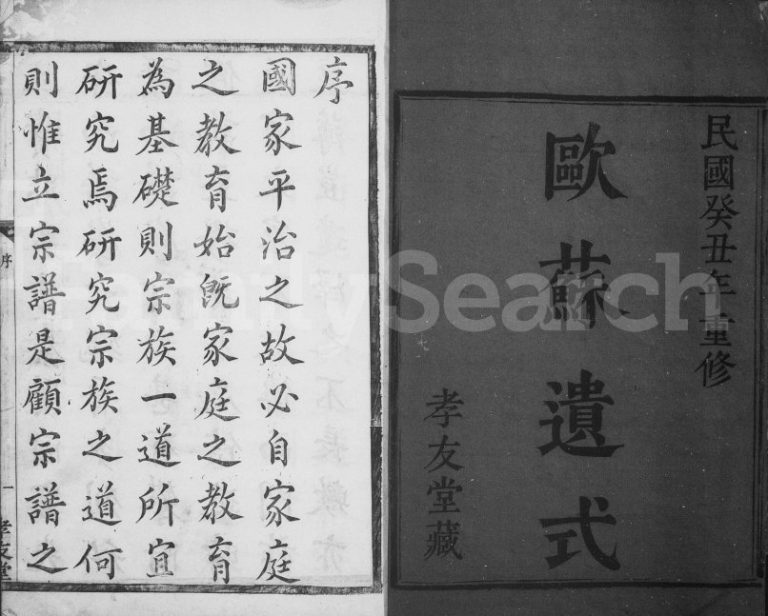 民國癸丑年重修
歐蘇遺式
孝友堂藏
序
國家平治之故必自家庭
之教育始旣家庭之教育
為基礎則宗族一道所宜
研究焉研究宗族之道何
則惟立宗譜是顧宗譜之
序
一
孝友堂
FamilySearch